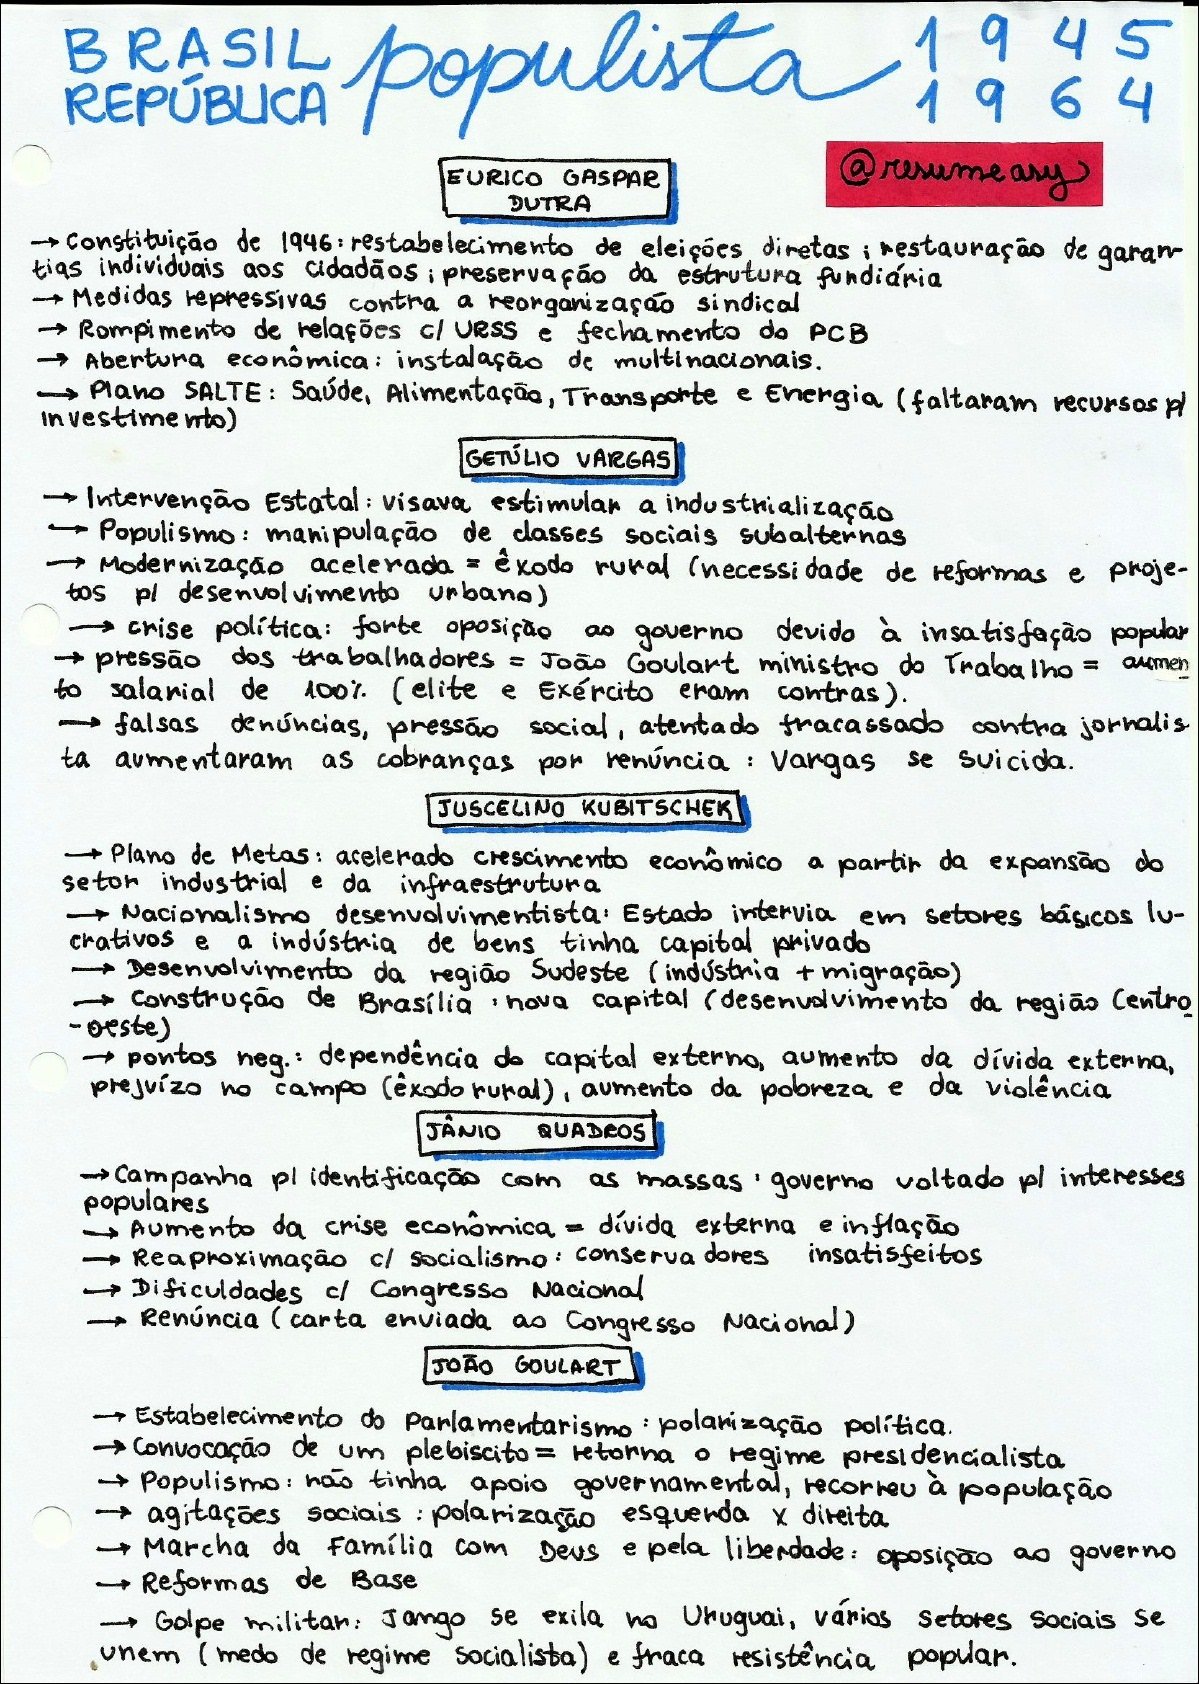 BRASIL populista 1945
REPÚBLICA 1964
@resumeasy
EURICO GASPAR
DUTRA
→ Constituição de 1946: restabelecimento de eleições diretas; restauração de garan-
tias individuais aos cidadãos; preservação da estrutura fundiária
→ Medidas repressivas contra a reorganização sindical
→ Rompimento de relações c/ URSS e fechamento do PCB
→ Abertura econômica: instalação de multinacionais.
→ Plano SALTE: Saúde, Alimentação, Transporte e Energia (faltaram recursos p/
investimento)
GETÚLIO VARGAS
→ Intervenção Estatal: visava estimular a industrialização
→ Populismo: manipulação de classes sociais subalternas
→ Modernização acelerada = êxodo rural (necessidade de reformas e proje-
tos p/ desenvolvimento urbano)
→ crise política: forte oposição ao governo devido à insatisfação popular
→ pressão dos trabalhadores = João Goulart ministro do Trabalho = aumen
to salarial de 100% (elite e Exército eram contras).
→ falsas denúncias, pressão social, atentado fracassado contra jornalis
ta aumentaram as cobranças por renúncia: Vargas se suicida.
JUSCELINO KUBITSCHEK
→ Plano de Metas: acelerado crescimento econômico a partir da expansão do
setor industrial e da infraestrutura
→ Nacionalismo desenvolvimentista: Estado intervia em setores básicos lu-
crativos e a indústria de bens tinha capital privado
→ Desenvolvimento da região Sudeste (indústria + migração)
→ Construção de Brasília: nova capital (desenvolvimento da região Centro
-oeste)
→ pontos neg.: dependência do capital externo, aumento da dívida externa,
prejuízo no campo (êxodo rural), aumento da pobreza e da violência
JÂNIO QUADROS
→ Campanha p/ identificação com as massas: governo voltado p/ interesses
populares
→ Aumento da crise econômica = dívida externa e inflação
→ Reaproximação c/ socialismo: conservadores insatisfeitos
→ Dificuldades c/ Congresso Nacional
→ Renúncia (carta enviada ao Congresso Nacional)
JOÃO GOULART
→ Estabelecimento do Parlamentarismo: polarização política.
→ Convocação de um plebiscito = retorna o regime presidencialista
→ Populismo: não tinha apoio governamental, recorreu à população
→ agitações sociais: polarização esquerda x direita
→ Marcha da Família com Deus e pela liberdade: oposição ao governo
→ Reformas de Base
→ Golpe militar: Jango se exila no Uruguai, vários setores sociais se
unem (medo de regime socialista) e fraca resistência popular.